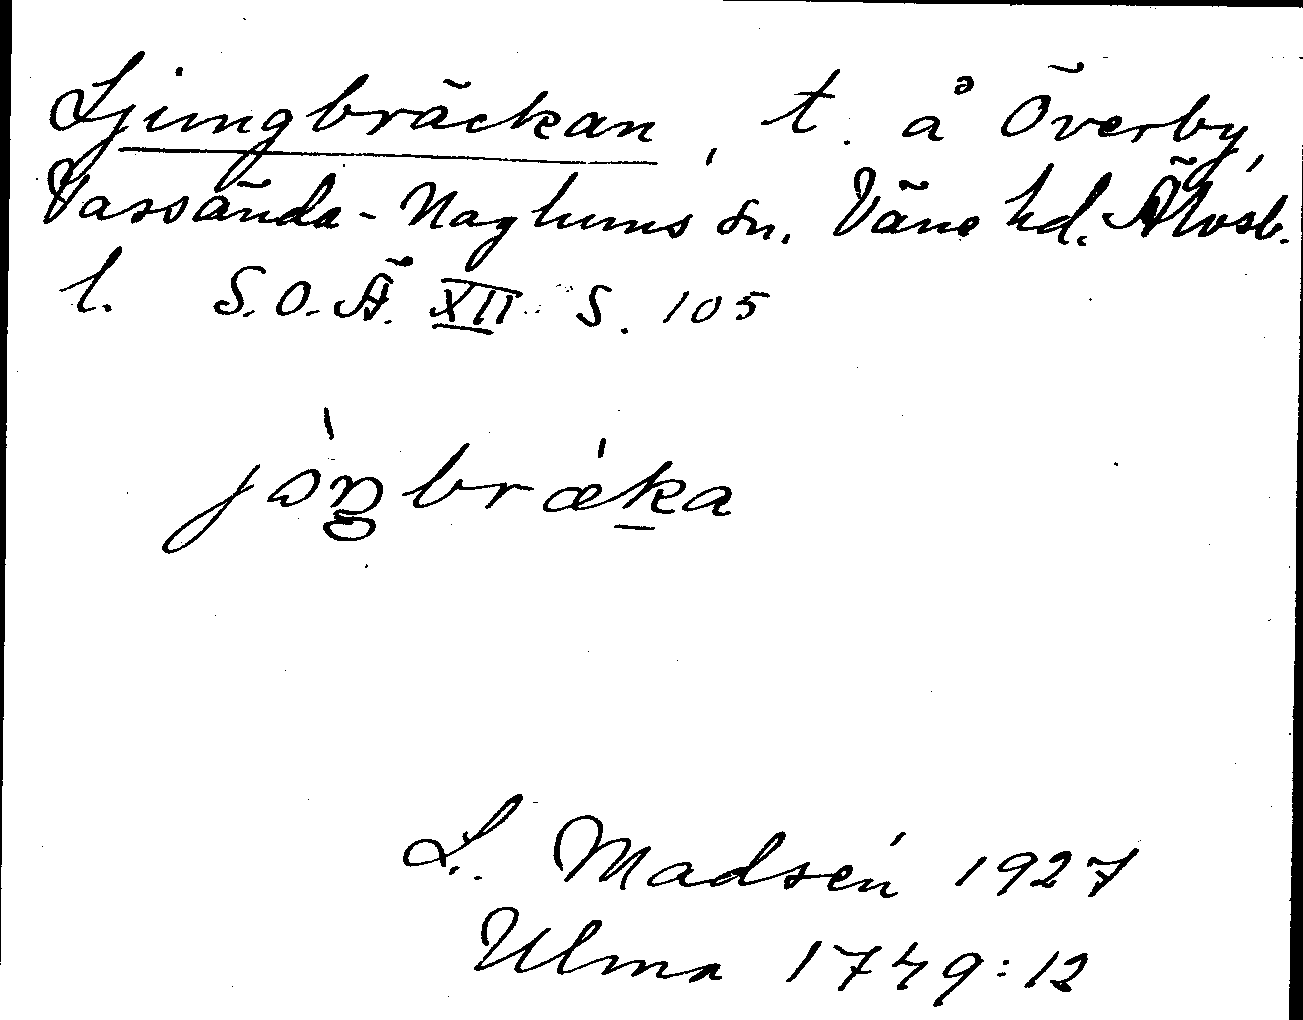 Ljungbräckan, t. å Överby,
Vassända-Naglums sn. Väne hd. Älvsb.
l. S.O.Ä. XII s. 105
jɔ̀ŋbrǽka
L. Madsén 1927
Ulma 1749:12